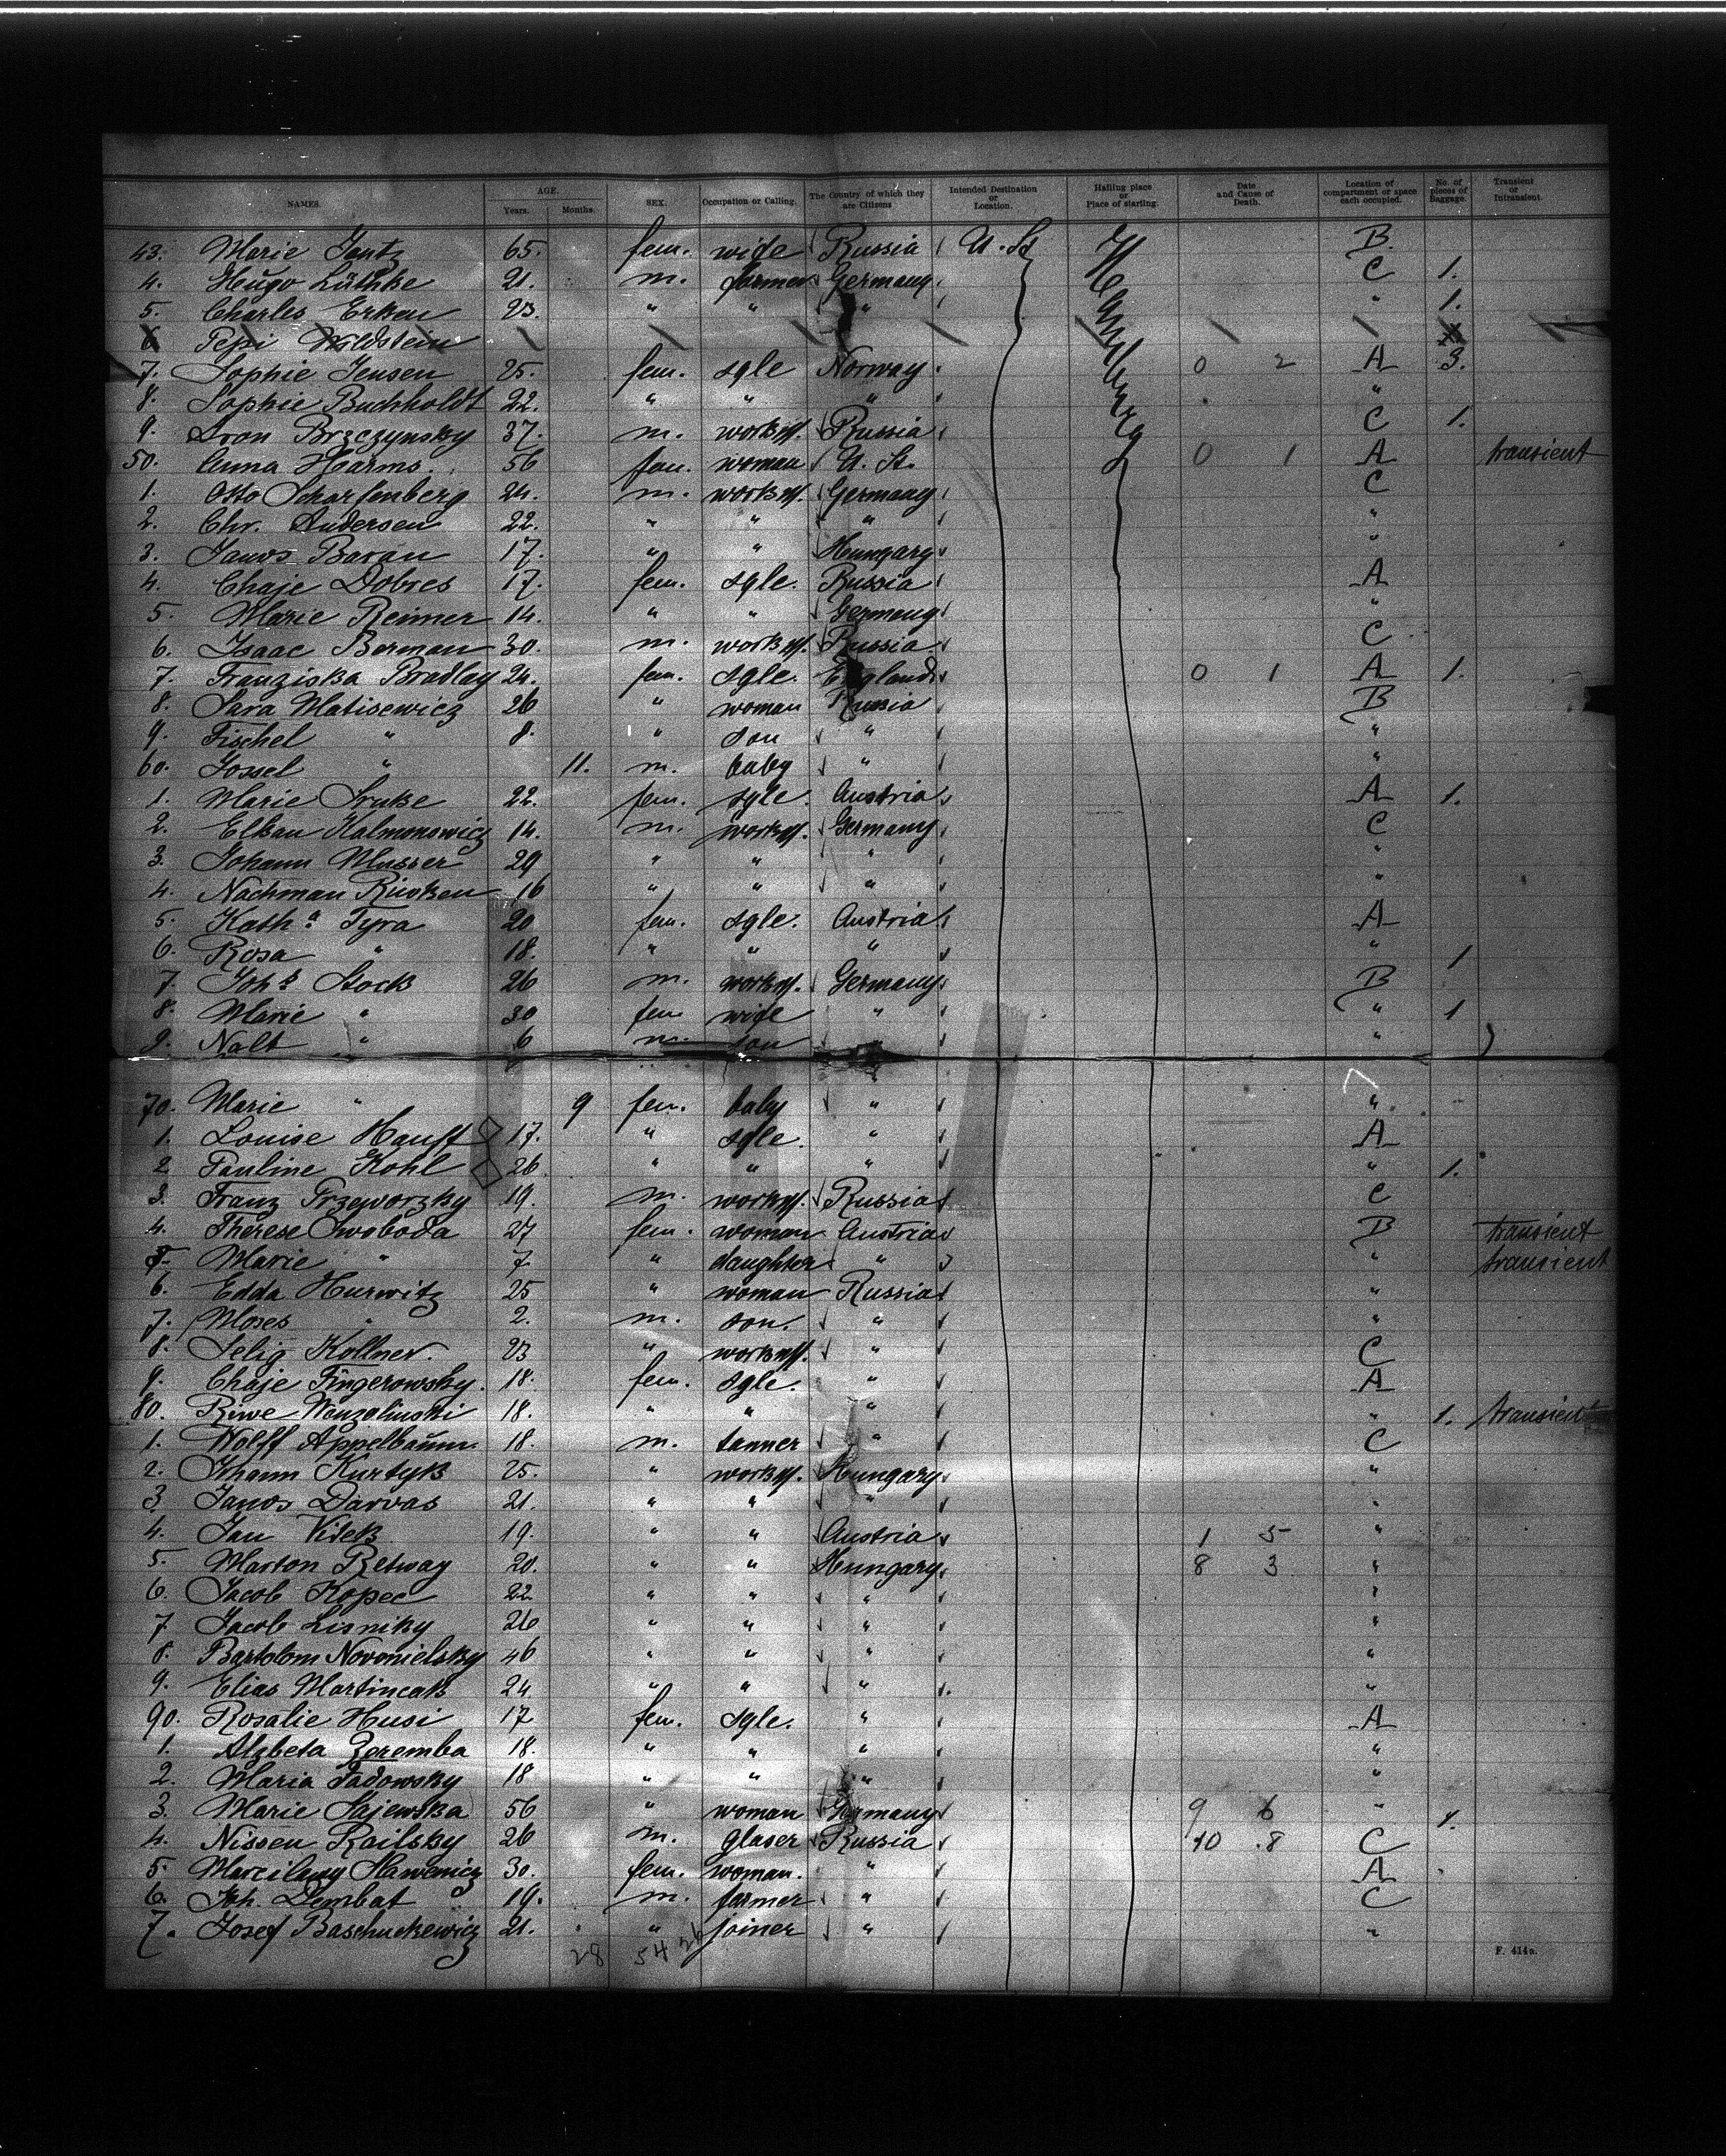 NAMES. AGE. Years. Months. SEX. Occupation or Calling. The Country of which they are Citizens Intended Destination or Location. Hailing place or Place of starting. Date and Cause of Death. Location of compartment or space each occupied. No. of pieces of Baggage. Transient or Intransient.
43. Marie Jantz 65. fem. wife Russia U. St Hamburg B.
4. Hugo Lüthke 21. m. farmer Germany C 1.
5. Charles Erken 23. " " " " 1.
6 Pepi Wildstein
7. Sophie Jensen 25. fem. sgle Norway 0 2 A 3.
8. Sophie Buchholdt 22. " " " "
9. Brzczynsky 37. m. Russia C 1.
50. Anna Harms. 56 fem. woman U. St. 0 1 A transient
1. Otto Scharfenberg 24. m. Germany C
2. Chr. Andersen 22. " " " "
3. Janos Baran 17. " " Hungary "
4. Chaje Dobres 17. fem. sgle. Russia A
5. Marie Reimer 14. " " Germany "
6. Isaac Berman 30. m. Russia C
7. Franziska Bradlay 24. fem. sgle. England 0 1 A 1.
8. Sara Matisewicz 26 " woman Russia B
9. Fischel " 8. " son " "
60. Jossel " 11. m. baby " "
1. Marie 22. fem. sgle. Austria A 1.
2. Elkan Kalmonowicz 14. m. Germany C
3. Johann Musser 29 " " " "
4. Nachman 16 " " " "
5. Kath.a Tyra 20 fem. sgle. Austria A
6. Rosa " 18. " " " " 1
7. Joh.s Stock 26 m. Germany B
8. Marie " 30 fem wife " " 1
9. Nalt " 6 m. son " "
70. Marie " 9 fem. baby " "
1. Louise Hauff 17. " sgle. " A
2 Pauline Kohl 26 " " " " 1.
3. Franz Przeworzky 19. m. Russia C
4. Therese Swoboda 27 fem. woman Austria B transient
5. Marie " 7 " daughter " " transient
6. Edda Hurwitz 25 " woman Russia "
7. Moses " 2. m. son. " "
8. Selig Kollner. 23 " " C
9. Chaje Fingerowsky. 18. fem. sgle. " A
80. Riwe 18. " " " " 1. transient
1. Wolff Appelbaum. 18. m. tanner " C
2. Johann Kurtyk 25. " Hungary "
3 Janos Darvas 21. " " " "
4. Jan Vitek 19. " " Austria 1 5 "
5. Marton Retway 20. " " Hungary 8 3 "
6. Jacob Kopec 22 " " " "
7. Jacob Lisniky 26 " " " "
8. Bartolom Novomielsky 46 " " " "
9. Elias Martincak 24 " " " "
90. Rosalie Husi 17 fem. sgle. " A
1. Alzbeta Zeremba 18. " " " "
2. Maria Fadowsky 18 " " " "
3. Marie Sajewska 56 " woman Germany 9 6 " 1.
4. Nissen Railsky 26 m. glaser Russia 10 8 C
5. 30. fem. woman. " A
6. Joh. Dembat 19. m. farmer " C
7. Josef Baschuckewicz 21. " joiner " "
28 54 26
F. 414a.